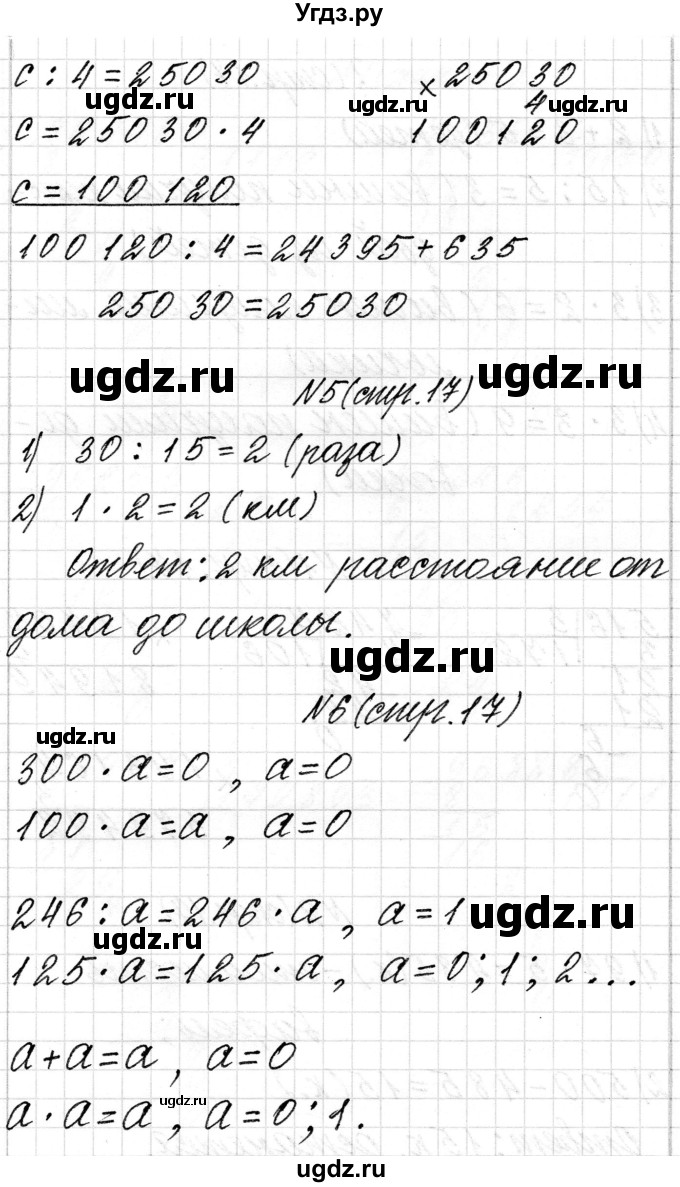 Угдз.ру
c : 4 = 25030
× 25030
ugdz.ru
ugdz.ru
4
c = 25030 · 4
100120
c = 100 120
100 120 : 4 = 24 395 + 635
250 30 = 25030
ugdz.ru
ugdz.ru
N5(стр.17)
1) 30 : 15 = 2 (раза)
2) 1 · 2 = 2 (км)
Ответ: 2 км расстояние от
дома до школы.
ugdz.ru
N6(стр.17)
ugdz.ru
300 · a = 0 , a = 0
100 · a = a , a = 0
246 : a = 246 · a , a = 1
ugdz.ru
ugdz.ru
125 · a = 125 · a , a = 0 ; 1 ; 2 ...
a + a = a , a = 0
ugdz.ru
a · a = a , a = 0 ; 1 .
ugdz.ru